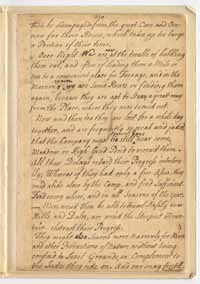 will be disengaged from the great Care and Con-
cern for their Horses, which takes up too large
a Portion of their time,
Over Night We are at the trouble of hobbling
them out, and often of leading them a Mile or
two to a convenient place for Forrage, and in the
Morning we are some Hours in finding them
again, because they are apt to Stray a great way
from the Place where they were turned out.
Now and then too they are lost for a whole day
together, and are frequently so weak and jaded
that the Company must ly still
Meadow or High Land Pond to recruit them.
All these Delays retard their Progress intolera-
bly; Whereas if they had only a few Asses, they
wou'd abide close to the Camp, and find Sufficient
Food every where, and in all Seasons of the year.
Men wou'd then be able to travel Safely over
Hills and Dales, nor wou'd the Steepest Moun-
tains obstruct their Progress.
They might also Search more narrowly for Mines
and other Productions of Nature, without being
confin'd to level Grounds, in Complement to
the Jades they ride on. And one may